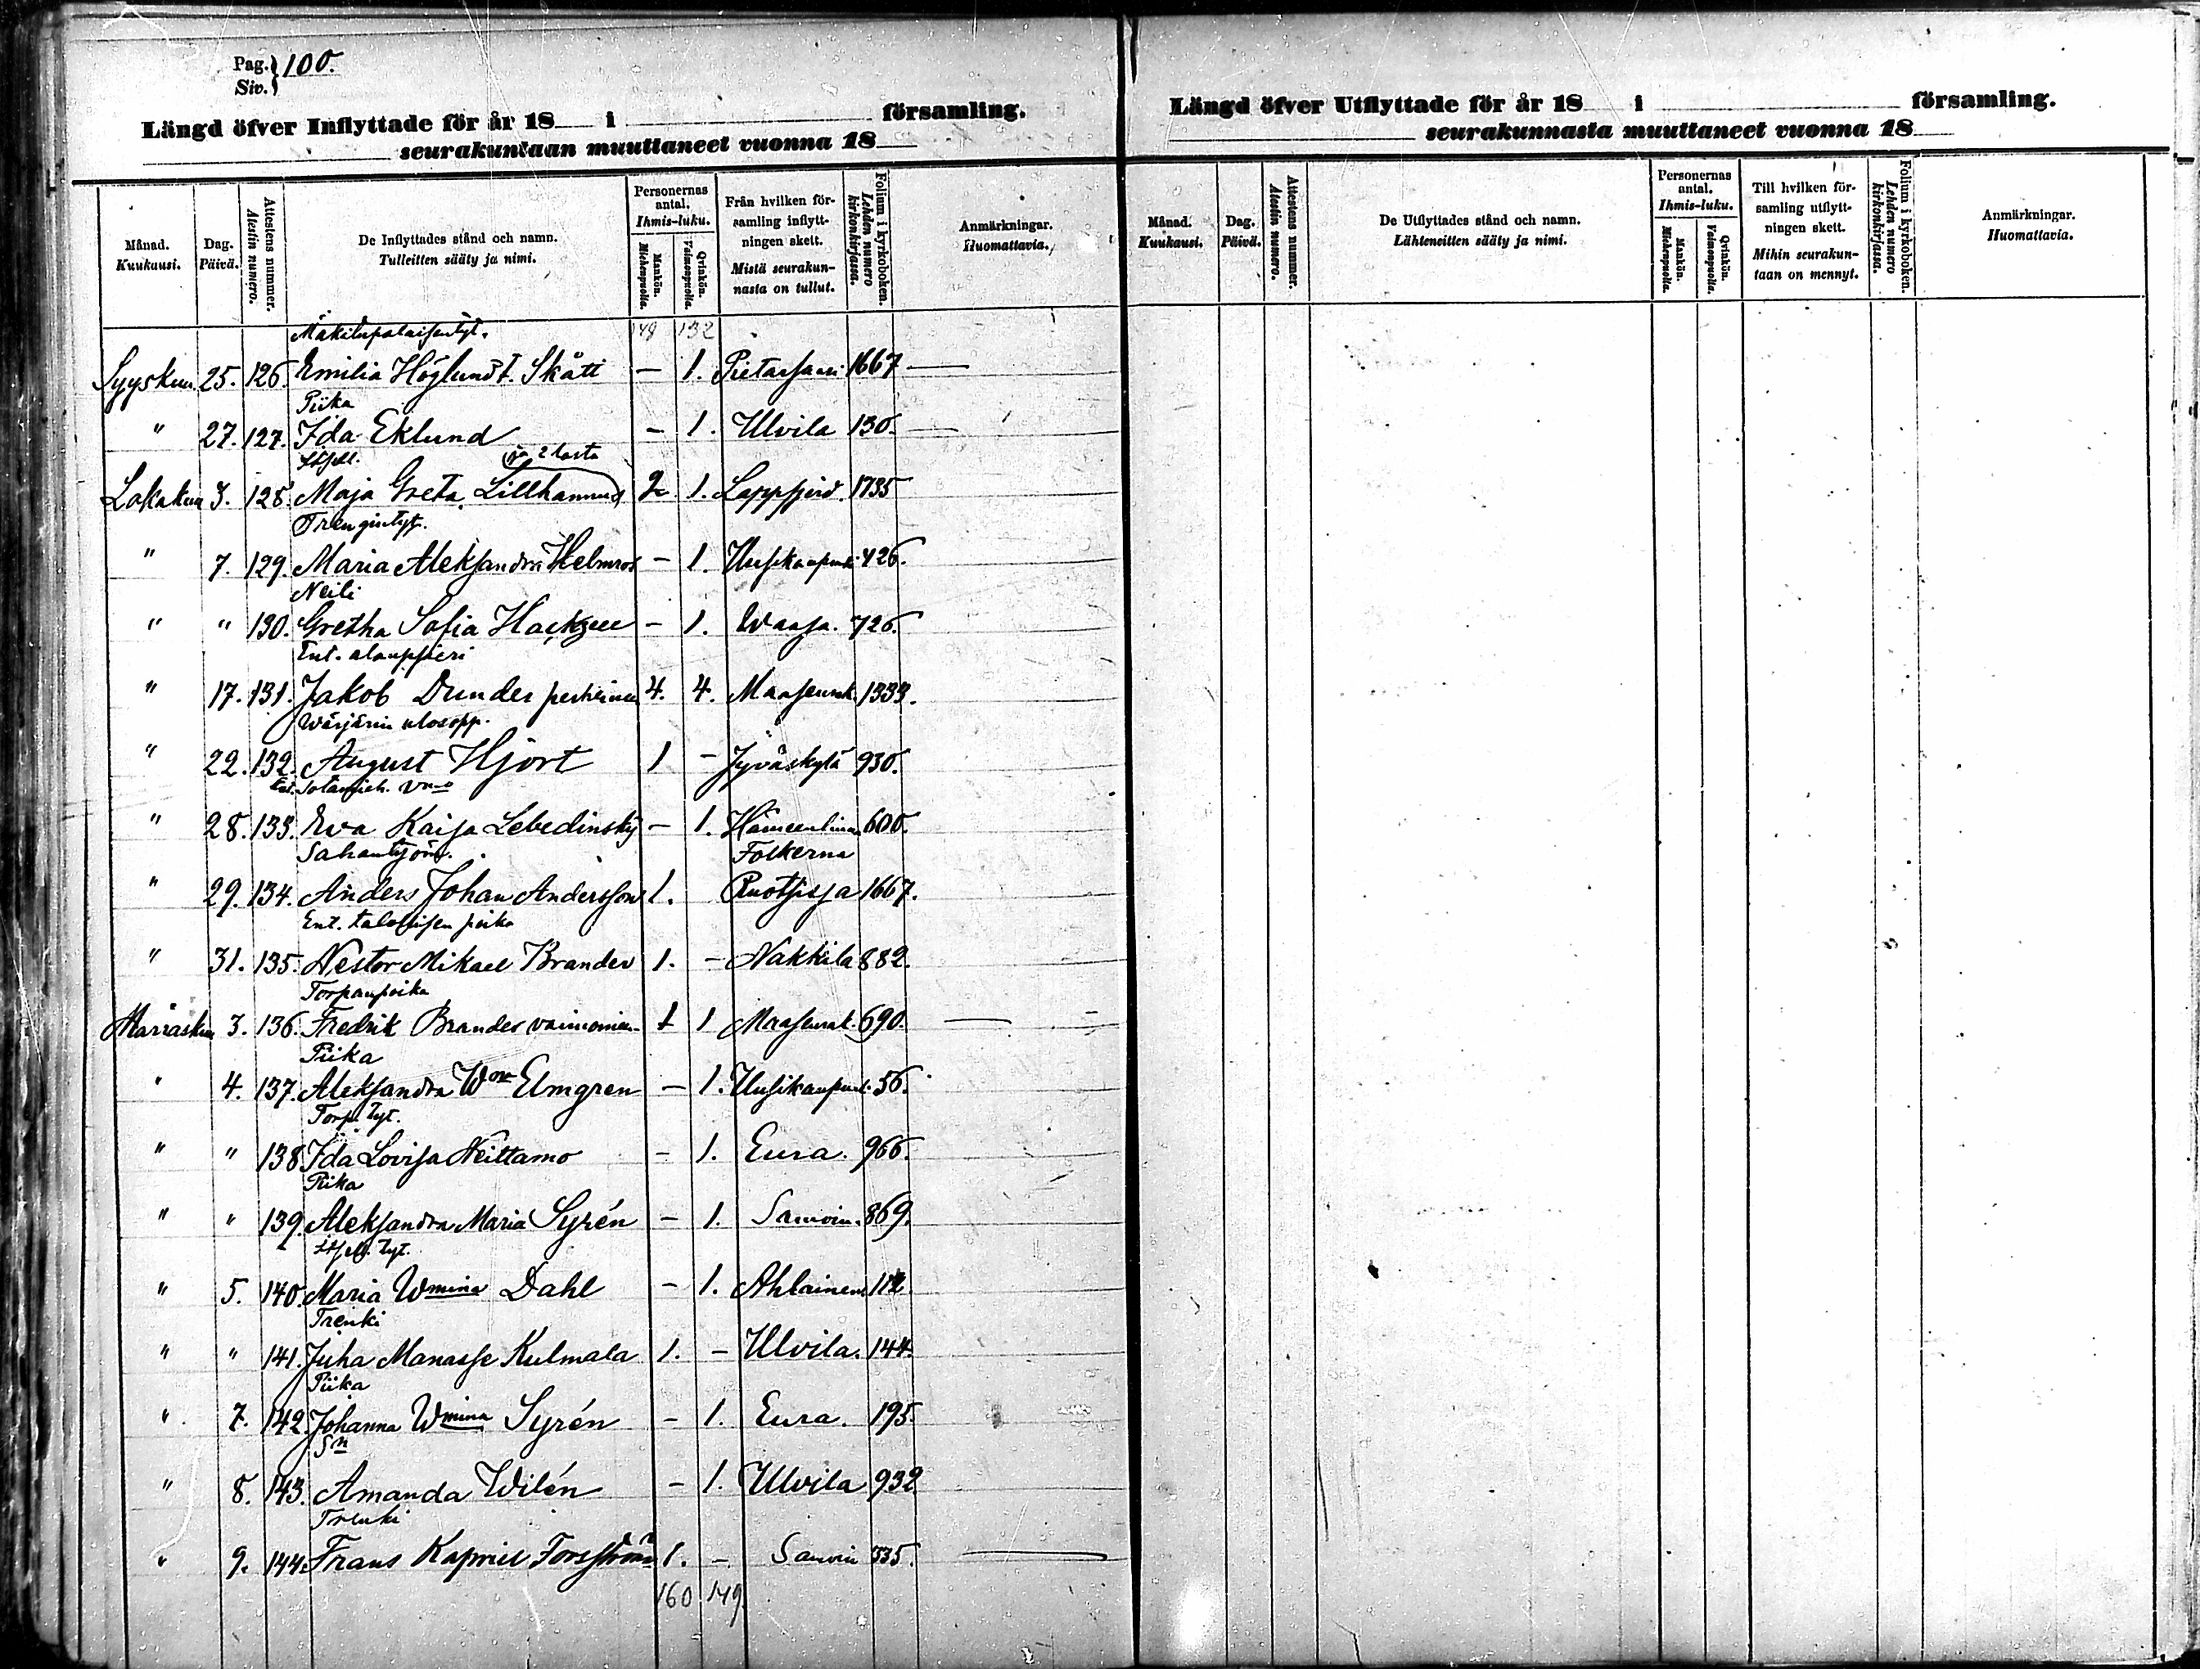 Pag. } 100.
Siv. }
Längd öfver Inflyttade för år 18 i församling.
seurakuntaan muuttaneet vuonna 18
Månad. Kuukausi.
Dag. Päivä.
Attestens nummer. Atestin numero.
De Inflyttades stånd och namn. Tulleitten sääty ja nimi.
Personernas antal. Ihmis-luku.
Mankön. Miehenpuolta.
Qvinkön. Vaimonpuolta.
Från hvilken församling inflyttningen skett. Mistä seurakunnasta on tullut.
Folium i kyrkoboken. Lehden numero kirkonkirjassa.
Anmärkningar. Huomattavia.
149 132
Syyskuu 25. 126. Emilia Höglund t. Skått — 1. Pietarsaari 1667 —
Piika
" 27. 127. Ida Eklund — 1. Ulvila 130. —
Itsell. ja 2 lasta
Lokakuu 3. 128. Maja Greta Lillhannus 2 1. Lappfjerd. 1735
Trengintyt.
" 7. 129. Maria Aleksandra Helmros — 1. Uusikaupunki 426.
Neiti
" " 130. Gretha Sofia — 1. Waasa. 726.
Ent. aloupsieri
" 17. 131. Jakob Dunder perheineen 4. 4. Maaseurak. 1333.
Wärjärin ulosopp.
" 22. 132. August Hjort 1 — Jyväskylä 930.
Ent. Sotamieh. vmo
" 28. 133. Eva Kaisa Lebedinsky — 1. Hämeenlinna 600.
Sahantyöm. Folkerna
" 29. 134. Anders Johan Andersson 1. Ruotsissa 1667.
Ent. talollisen poika
" 31. 135. Nestor Mikael Brander 1. — Nakkila 882.
Torpanpoika
Marrasku 3. 136. Fredrik Brander vaimonien 1 1 Maaseurak. 690. —
Piika
" 4. 137. Aleksandra Wna Elmgren — 1. Uusikaupunki 56.
Torp. tyt.
" " 138. Ida Lovisa Neittamo — 1. Eura. 966.
Piika
" " 139. Aleksandra Maria Syrén — 1. 869.
Itsell. tyt.
" 5. 140. Maria Wmina Dahl — 1. Ahlainen 112
Trenki
" " 141. Juha Manasse Kulmala 1. — Ulvila. 144.
Piika
" 7. 142. Johanna Wmina Syrén — 1. Eura. 195.
Sn
" 8. 143. Amanda Wilén — 1. Ulvila 932
Trenki
" 9. 144. Frans Kapriel Forsström 1. — 335. —
160 149.
Längd öfver Utflyttade för år 18 i församling.
seurakunnasta muuttaneet vuonna 18
Månad. Kuukausi.
Dag. Päivä.
Attestens nummer. Atestin numero.
De Utflyttades stånd och namn. Lähteneitten sääty ja nimi.
Personernas antal. Ihmis-luku.
Mankön. Miehenpuolta.
Qvinkön. Vaimonpuolta.
Till hvilken församling utflyttningen skett. Mihin seurakuntaan on mennyt.
Folium i kyrkoboken. Lehden numero kirkonkirjassa.
Anmärkningar. Huomattavia.